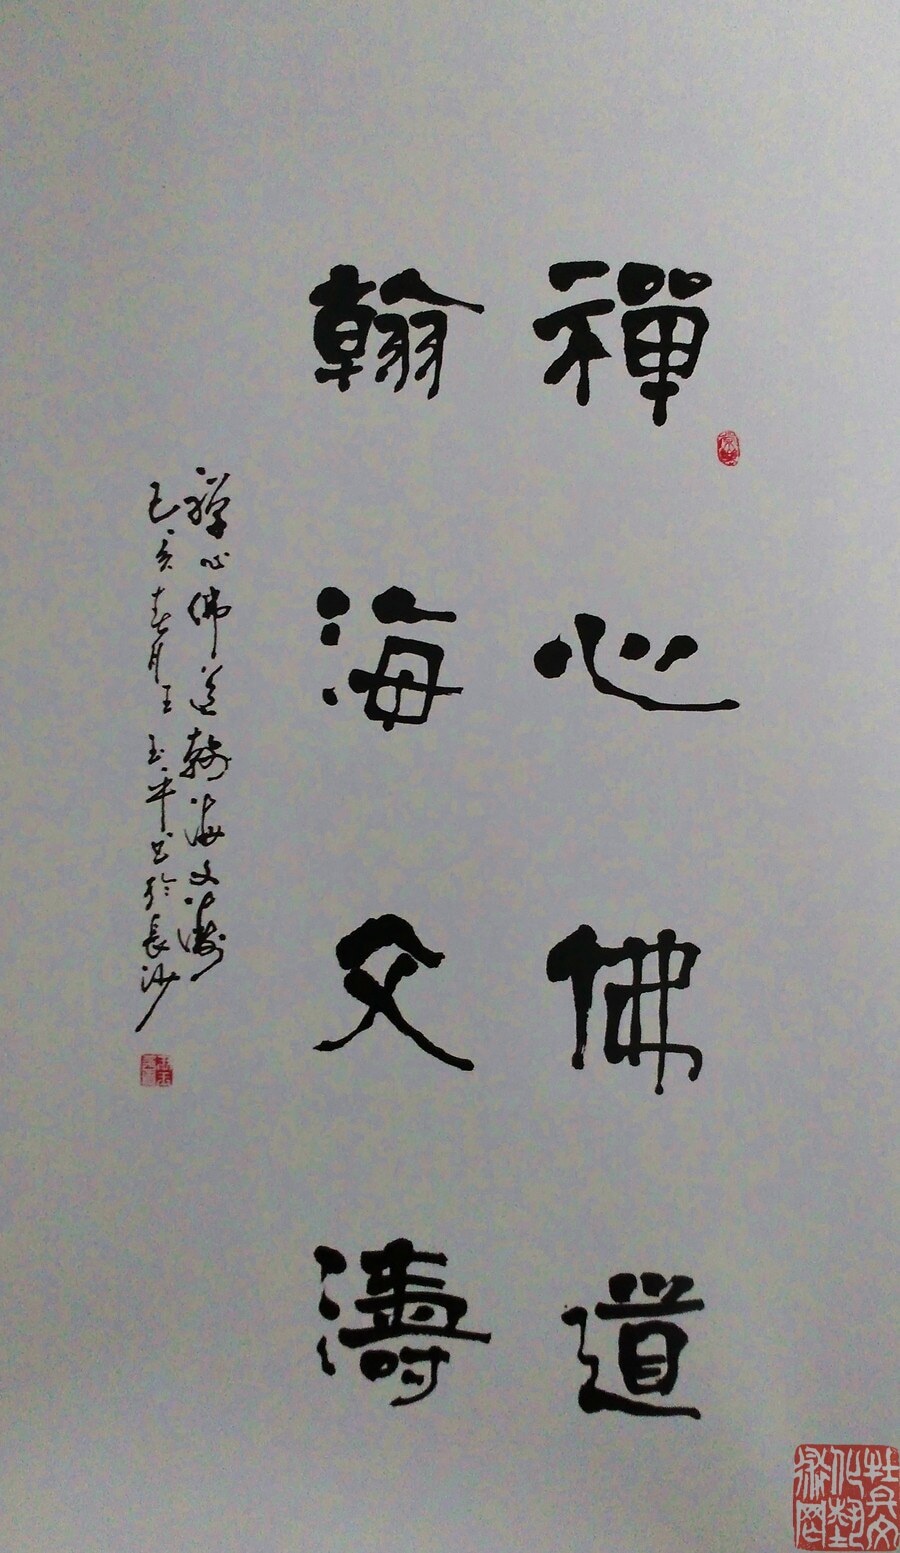 禪心佛道
翰海文濤
禅心佛道翰海文濤
己亥春月王玉平书於長沙